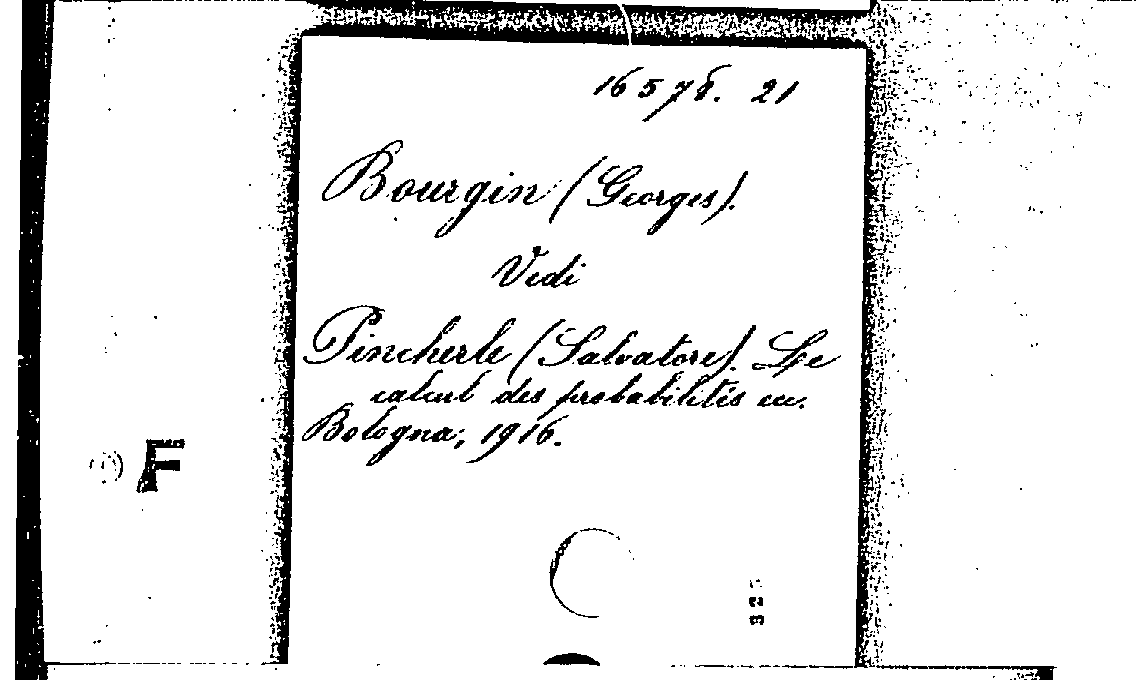 16578. 21
Bourgin (Georges).
Vedi
Pincherle (Salvatore). Le
calcul des probabilités ecc.
Bologna, 1916.
F